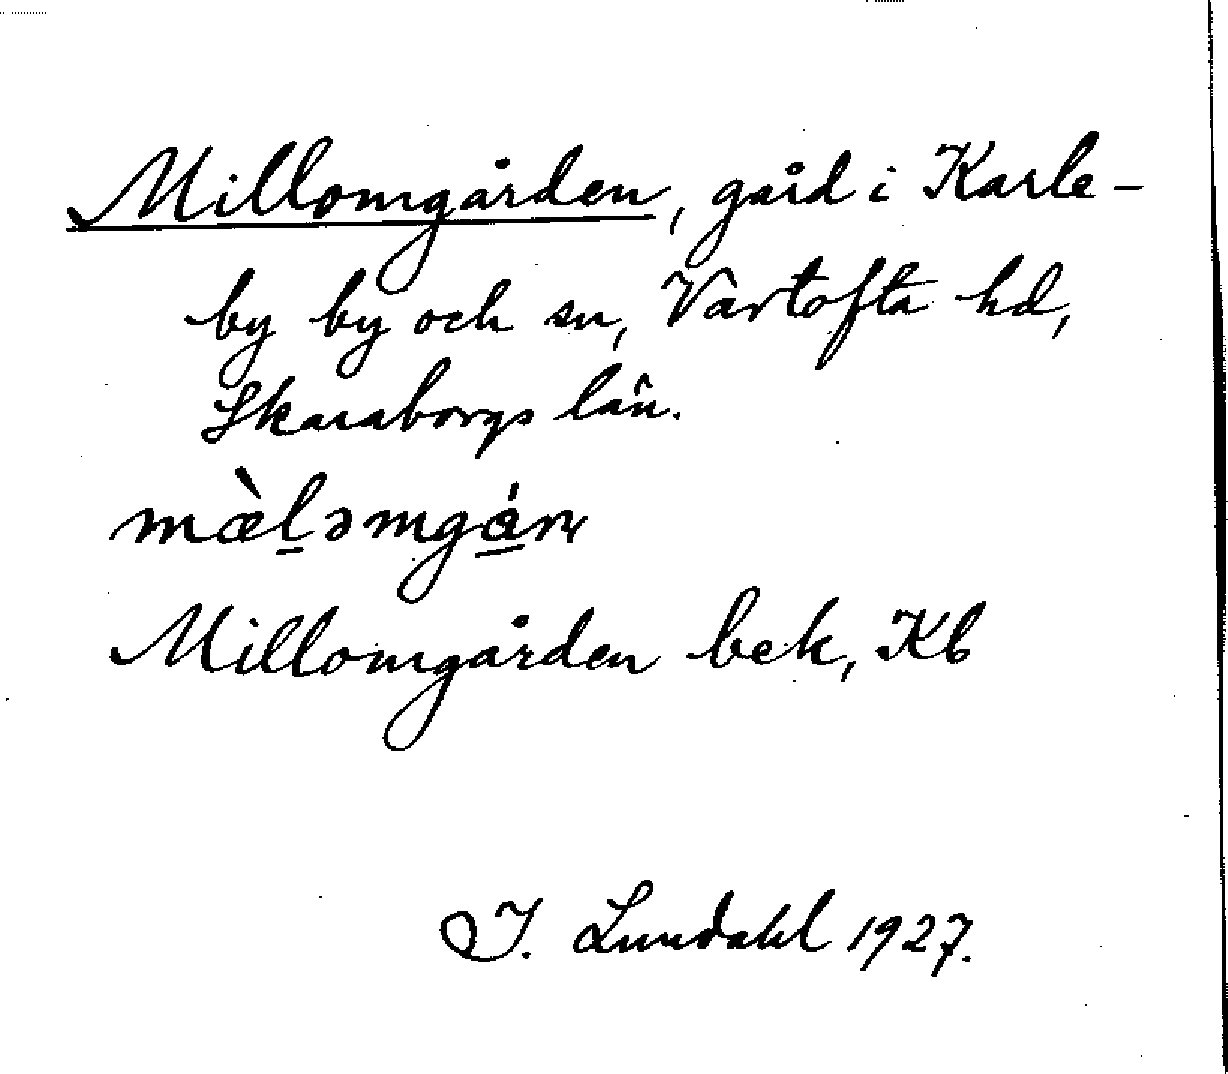 Millomgården, gård i Karle-
by by och sn, Vartofta hd,
Skaraborgs län.
mæ̀l̠əmgá̠ɳ
Millomgården bek, Kb
I. Lundahl 1927.